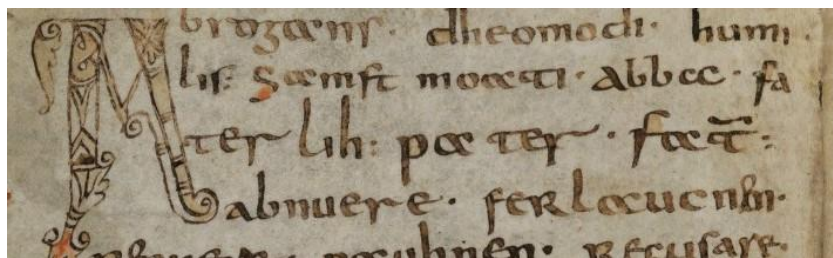 Abrogans · dheomodi · humi
lis: samft moati · abba · fa
ter lih: pater · fat̄:
abnuere ·
pauhnen · recusare·